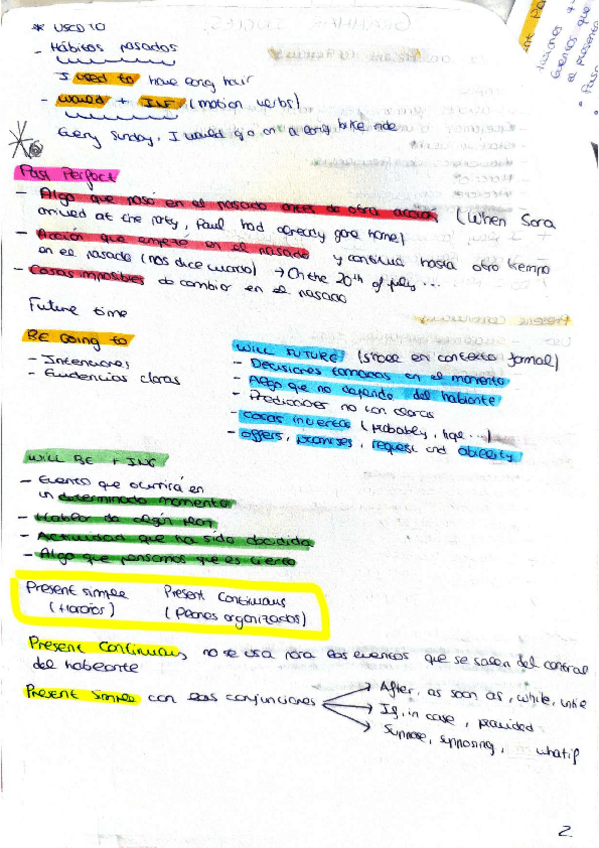 * USED TO
- Hábitos pasados
I used to have long hair
- would + INF (motion verbs)
Every Sunday, I would go on a long bike ride
Past Perfect
- Algo que pasó en el pasado antes de otra acción (When Sara
arrived at the party, Paul had already gone home)
- Acción que empezó en el pasado y continua hasta otro tiempo
en el pasado (nos dice cuando) → On the 20th of July ...
- Cosas imposibles de cambiar en el pasado
Future time
BE Going to
- Intenciones
- Evidencias claras
WILL FUTURE (shall en contexto formal)
- Decisiones tomadas en el momento
- Algo que no depende del hablante
- Predicciones no tan claras
- cosas inciertas (Probably, ...)
- offers, promises, request and ability
WILL BE + ING
- Evento que ocurrirá en
un determinado momento
- Hablar de algún plan
- Actividad que ha sido decidida
- Algo que pensamos que es cierto
Present simple
(Horarios)
Present Continuous
(Planes organizados)
Present Continuous, no se usa para los eventos que se salen del control
del hablante
Present Simple con las conjunciones
→ After, as soon as, while, until
→ If, in case, provided
→ Suppose, supposing, what if
2